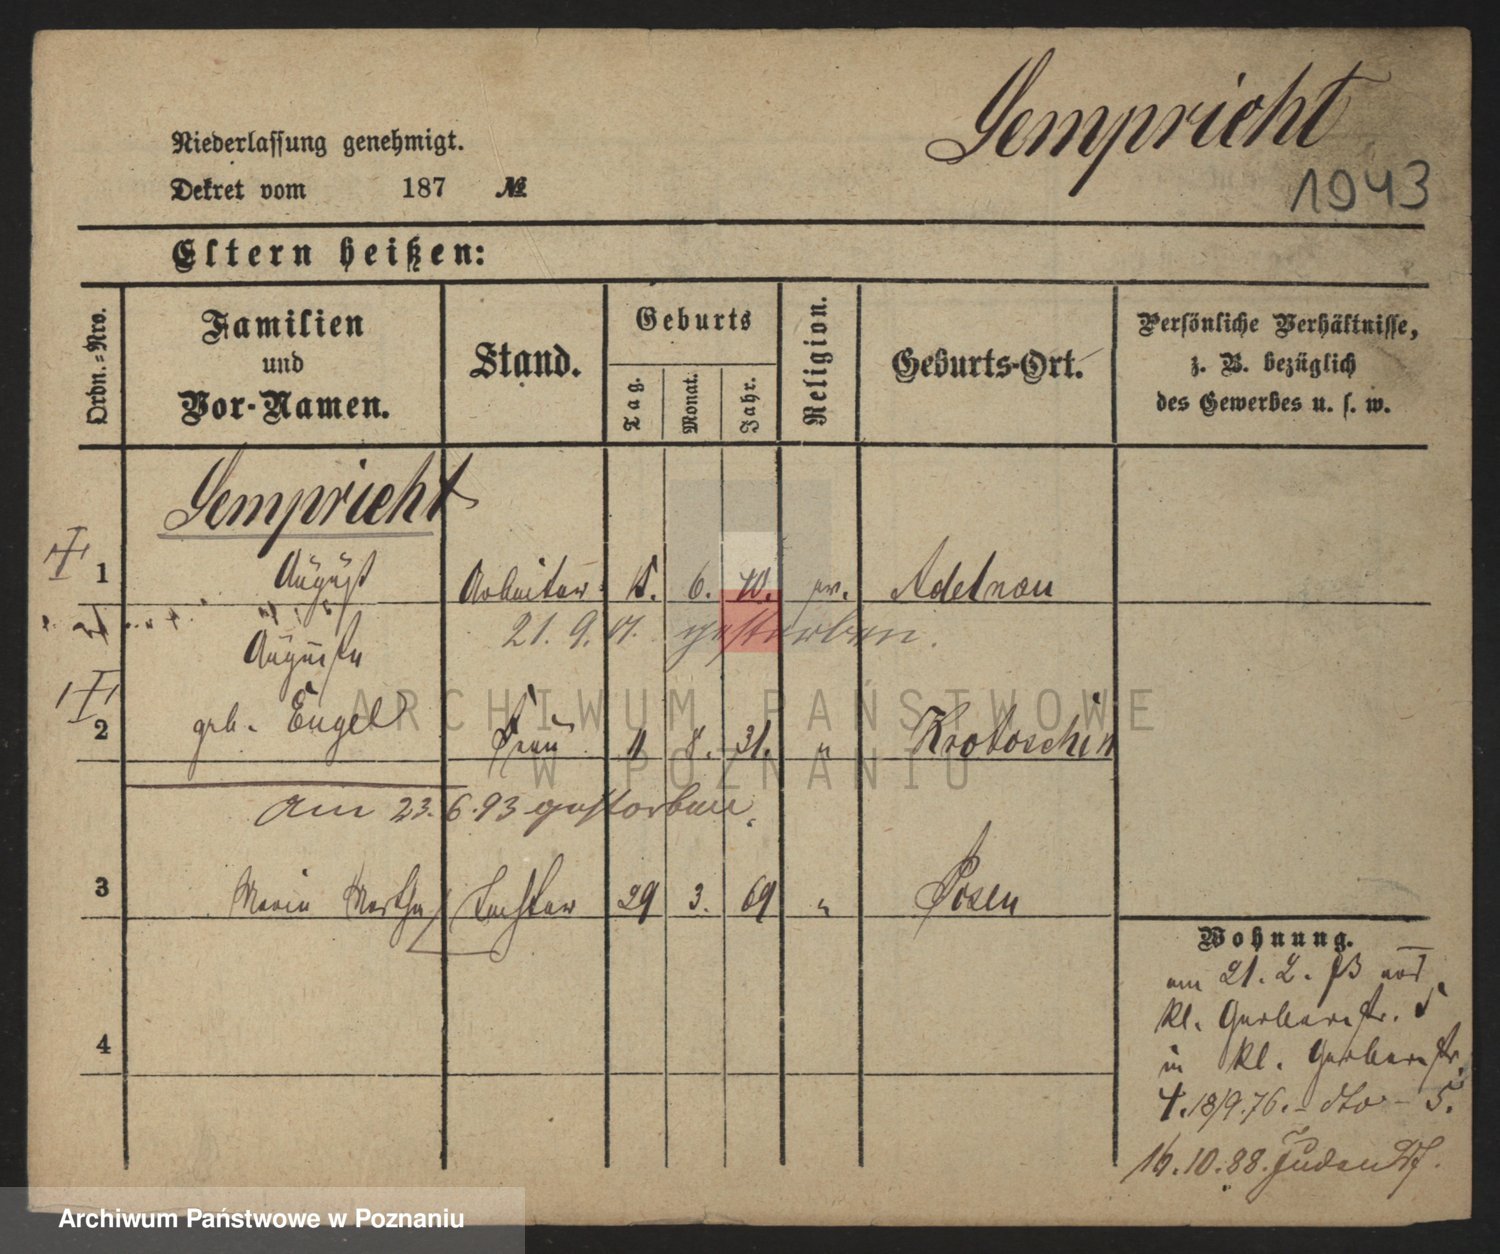 Sempricht
1943
Niederlassung genehmigt.
Dekret vom 187 №
Eltern heißen:
Ordn.=Nro.
Familien
und
Vor-Namen.
Stand.
Geburts
Tag.
Monat.
Jahr.
Religion.
Geburts-Ort.
Persönliche Verhältnisse,
z. B. bezüglich
des Gewerbes u. s. w.
Sempricht
1 August Arbeiter 15. 6. 40. ev. Adelnau
21. 9. gestorben.
Auguste
2 geb. Engel Frau 11 8. 31. " Krotoschin
am 23. 6. 93 gestorben.
3 Maria Martha Tochter 29 3. 69 " Posen
4
Wohnung.
am 21. 2. von
kl. Gerberstr. 5
in kl. Gerberstr.
4. 18/9. 76. - dto - 5.
16. 10. 88. Juden 27.
ARCHIWUM PAŃSTWOWE
W POZNANIU
Archiwum Państwowe w Poznaniu